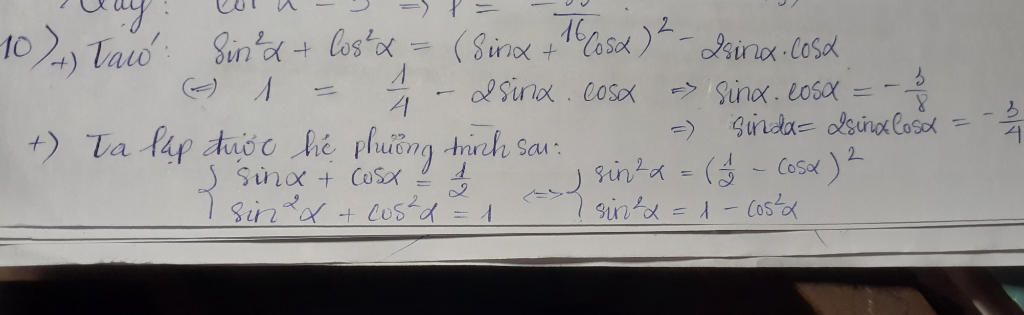 cot α - 3 => P = - /16
10) +) Ta có: Sin²α + Cos²α = (Sinα + Cosα)² - 2sinα.cosα
(=) 1 = 1/4 - 2sinα.cosα => sinα.cosα = -3/8
=> Sin2α = 2sinαCosα = -3/4
+) Ta lập được hệ phương trình sau:
{ sinα + cosα = 1/2 <=> { sin²α = (1/2 - cosα)²
sin²α + cos²α = 1 sin²α = 1 - cos²α